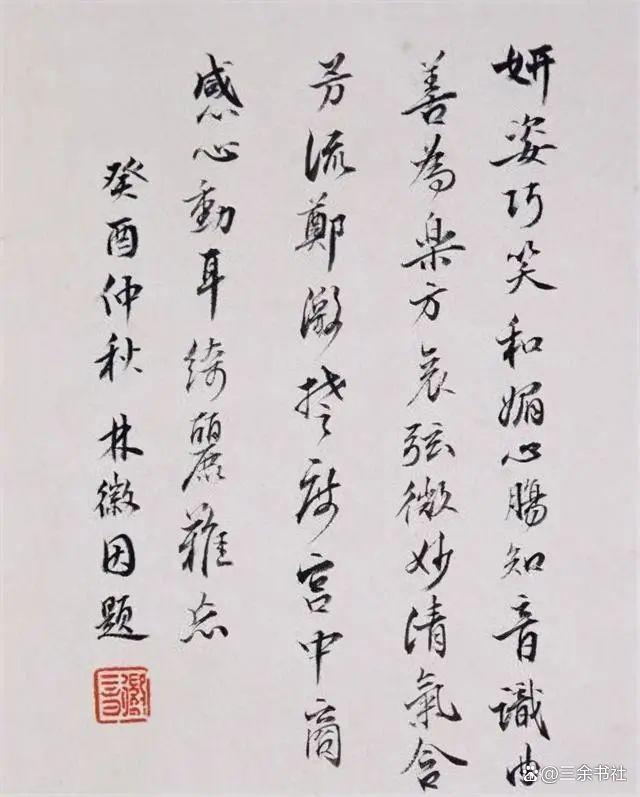 妍姿巧笑和媚心腸知音識曲
善為楽方哀弦微妙清氣含
芳流鄭激楚度宮中商
感心動耳綺麗難忘
癸酉仲秋 林徽因題
徽音
三余书社